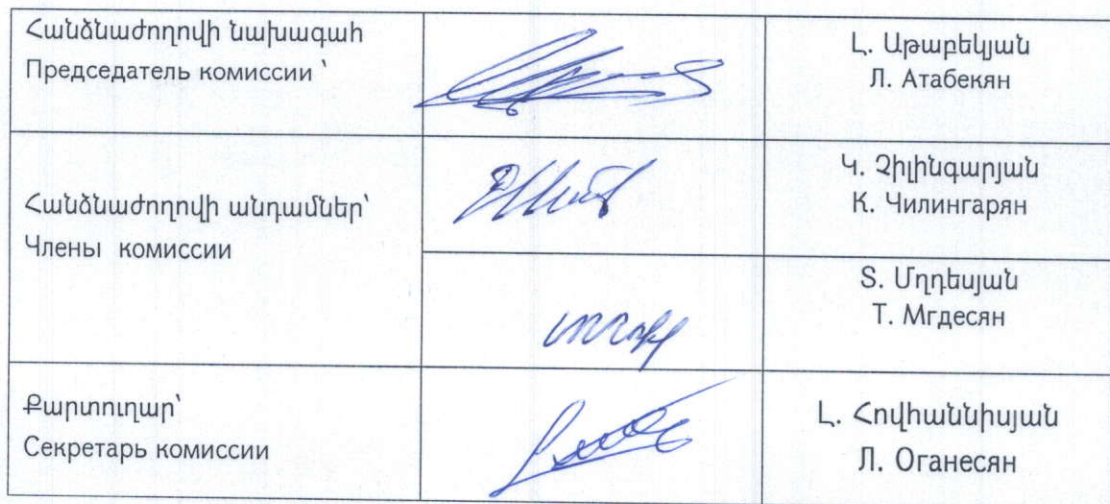 Հանձնաժողովի նախագահ
Председатель комиссии ՝
Լ. Աթաբեկյան
Л. Атабекян
Հանձնաժողովի անդամներ՝
Члены комиссии
Կ. Չիլինգարյան
К. Чилингарян
Տ. Մղդեսյան
Т. Мгдесян
Քարտուղար՝
Секретарь комиссии
Լ. Հովհաննիսյան
Л. Оганесян